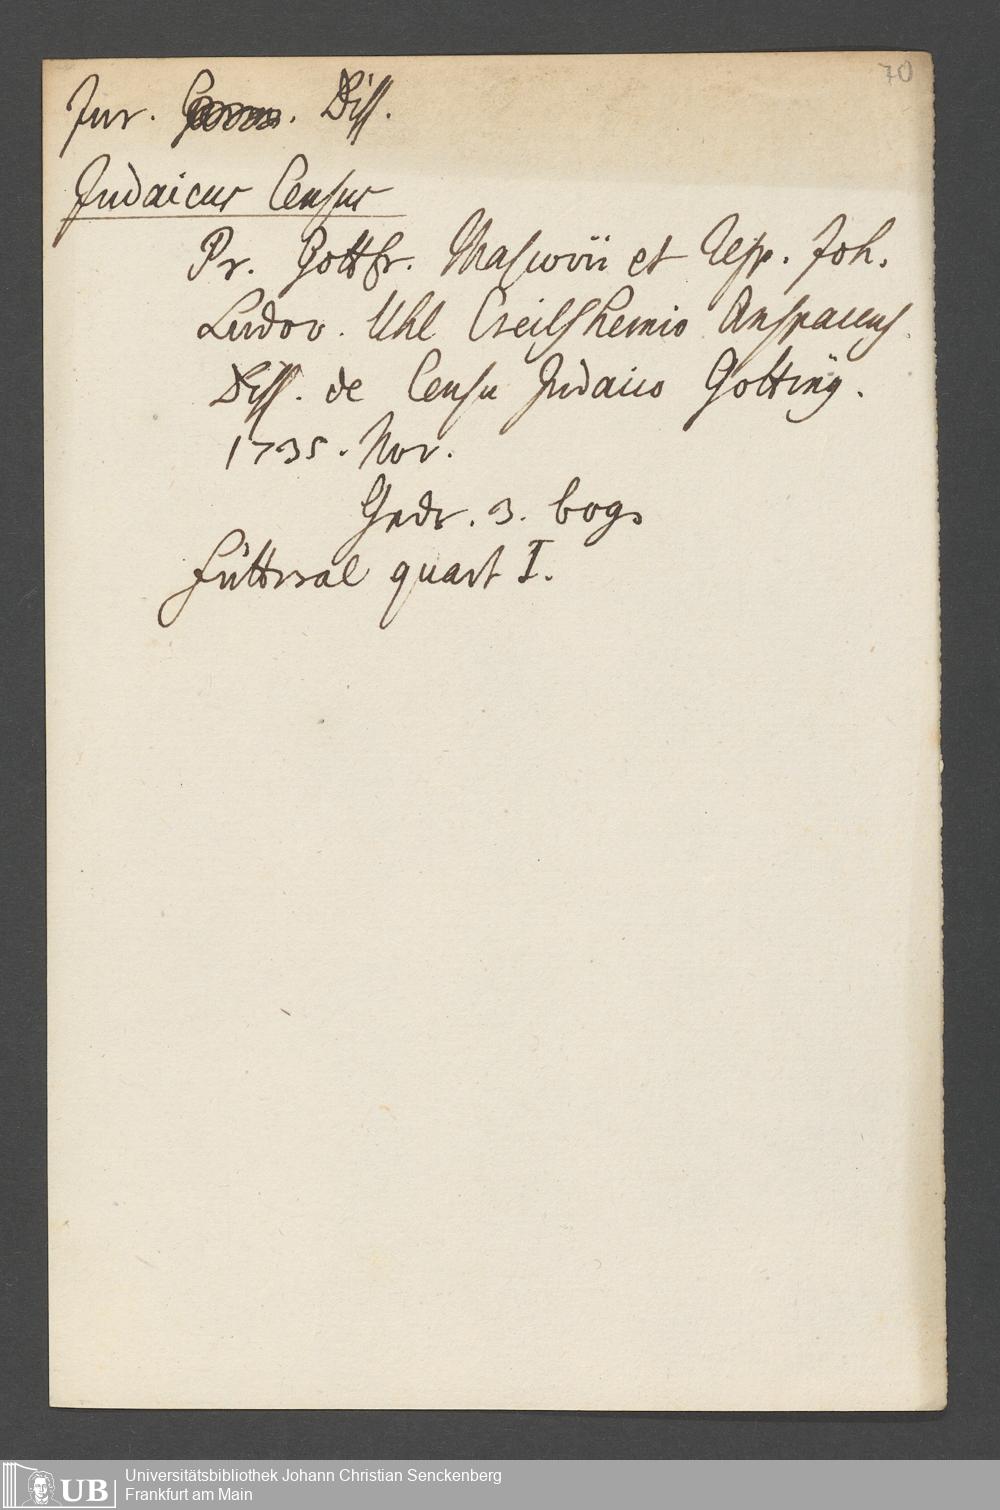 70
Jur. Diss.
Judaicus Census
Pr. Gottfr. Mascovii et Resp. Joh.
Ludov. Uhl Creilshemio Anspacens.
Diss. de Censu Judaico Gotting.
1735. Nov.
Gedr. 3. bog.
Futteral quart I.
UB
Universitätsbibliothek Johann Christian Senckenberg
Frankfurt am Main